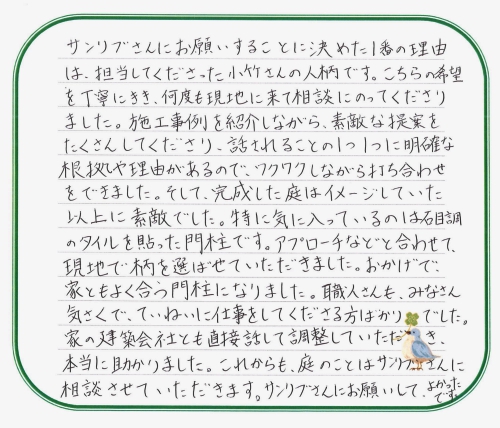 サンリブさんにお願いすることに決めた1番の理由
は、担当してくださった小竹さんの人柄です。こちらの希望
を丁寧にきき、何度も現地に来て相談にのってくださり
ました。施工事例を紹介しながら、素敵な提案を
たくさんしてくださり、話されることの1つ1つに明確な
根拠や理由があるので、ワクワクしながら打ち合わせ
をできました。そして、完成した庭はイメージしていた
以上に素敵でした。特に気に入っているのは石目調
のタイルを貼った門柱です。アプローチなどと合わせて、
現地で柄を選ばせていただきました。おかげで、
家ともよく合う門柱になりました。職人さんも、みなさん
気さくで、ていねいに仕事をしてくださる方ばかりでした。
家の建築会社とも直接話して調整していただき、
本当に助かりました。これからも、庭のことはサンリブさんに
相談させていただきます。サンリブさんにお願いして、よかった
です。